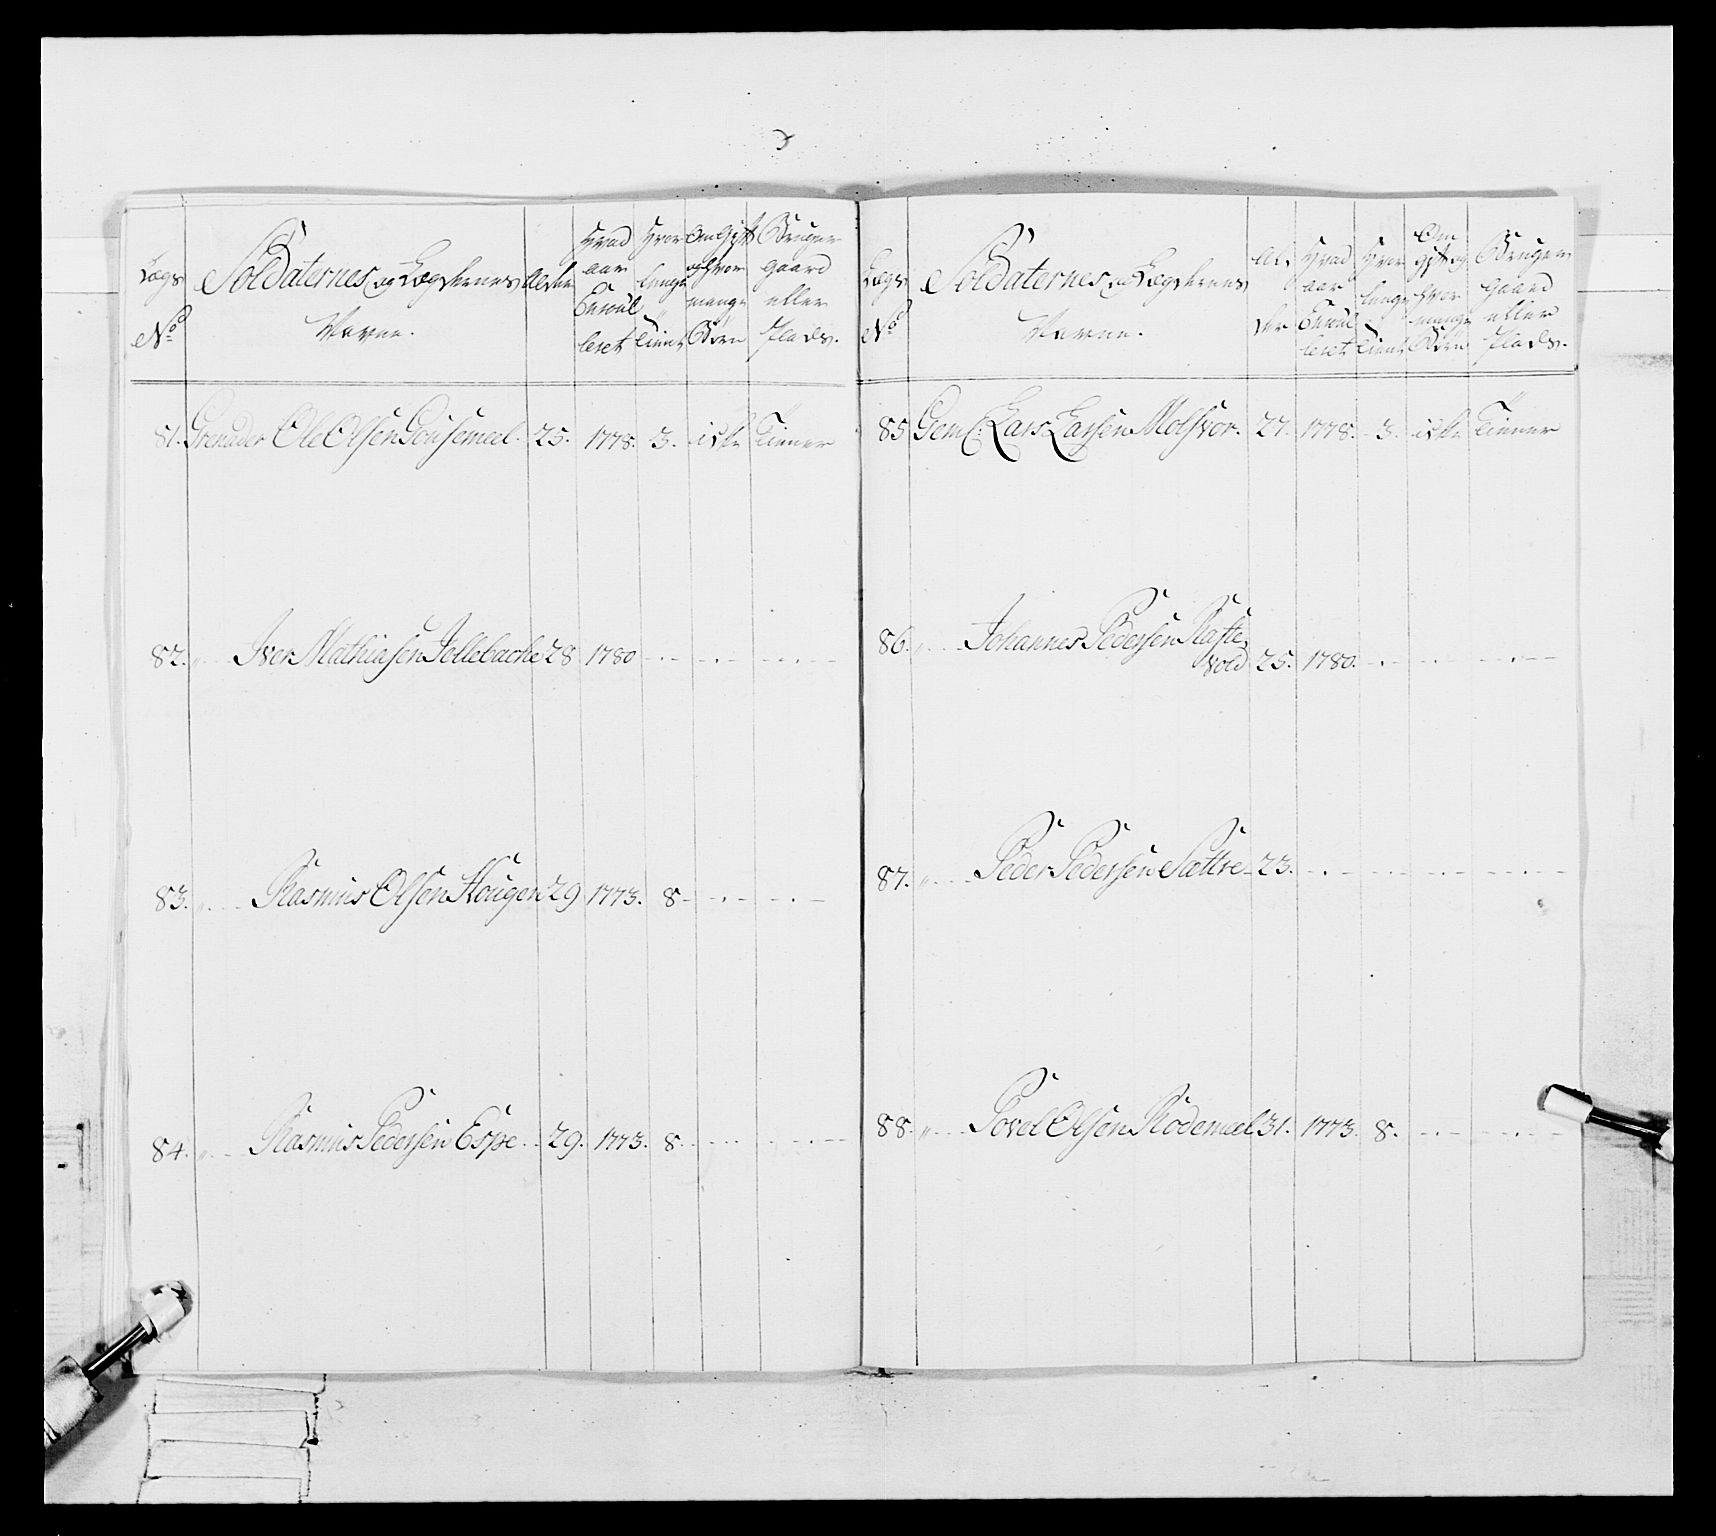 Lægs No
Soldaternes og Lægdernes Navne.
Alder
Hvad aar Enroulleret
Hvor længe Tient
Om Gift og hvor mange Børn
Bruger Gaard eller Plads.
81. Grenader Ole Olsen 25. 1778. 3. iche Tiener
82. " Iver Mathiasen Jellebache 28 1780
83. " Rasmus Olsen Hougen 29 1773. 8
84. " Rasmus Pedersen Espe 29. 1773. 8
Lægs No
Soldaternes og Lægdernes Navne.
Alder
Hvad aar Enroulleret
Hvor længe Tient
Om gift og hvor mange Børn
Bruger Gaard eller Plads.
85 Gem C: Lars Larsen Molsvor. 27. 1778. 3. iche Tiener
86. " Johannes Pedersen Rafte
vold 25. 1780.
87. " Peder Pedersen Sættre 23.
88. " Povel Olsen Rødemæl 31. 1773. 8.